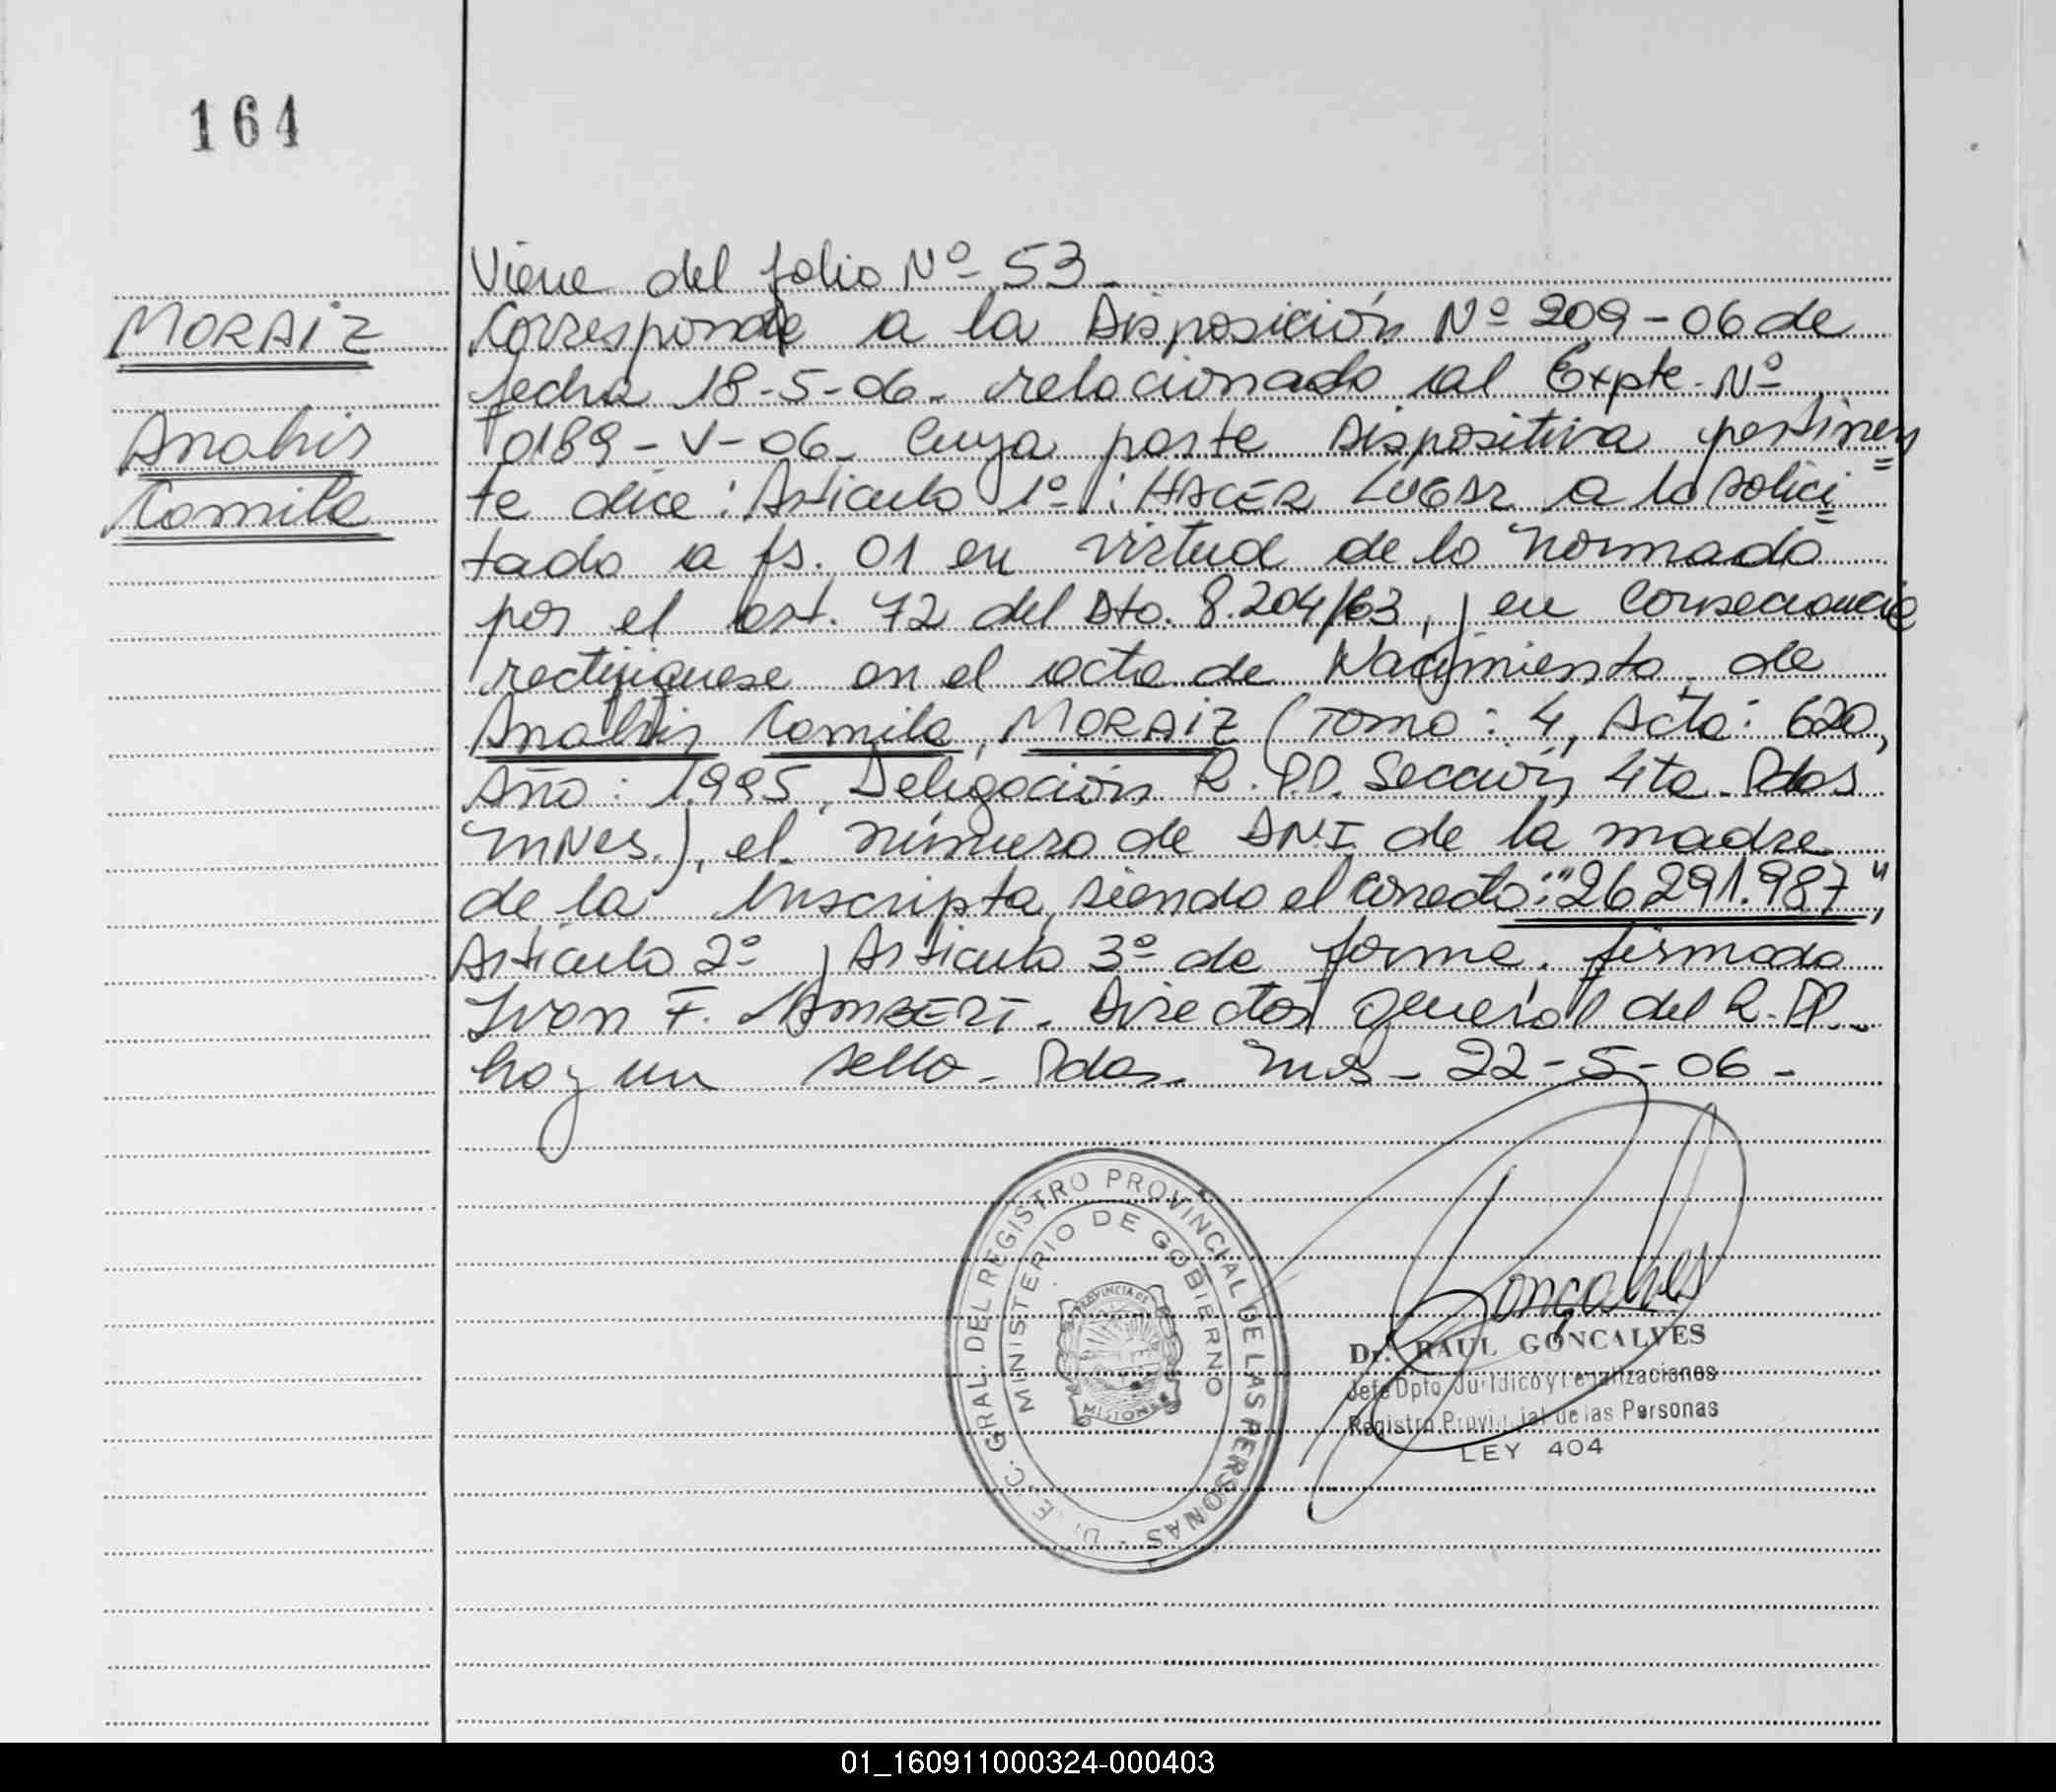 164
Viene del folio Nº 53_
MORAIZ
Corresponde a la Disposición Nº 209-06 de
fecha 18-5-06_ relacionado al Expte. Nº
Anahir
0189-V-06_ Cuya parte dispositiva pertinen
Camila
te dice: Articulo 1º: HACER LUGAR a lo solici
tado a fs. 01 en virtud de lo normado
por el art. 72 del Dto. 8.204/63, en Consecuencia
rectifiquese en el acta de Nacimiento de
Anahir Camila, MORAIZ (Tomo: 4, Acta: 620,
Año: 1995, Delegación R.P.P. Sección 4ta. Pdas
MNes.), el número de DNI de la madre
de la Inscripta, siendo el correcto: "26291.987",
Articulo 2º, Articulo 3º de forma. firmado
Ivan F. LAMBERT. Director general del R.PP._
hay un sello_ Pdas. Ms_ 22-5-06_
D. E. C. GRAL. DEL REGISTRO PROVINCIAL DE LAS PERSONAS
MINISTERIO DE GOBIERNO
PROVINCIA DE
MISIONES
Gonçalves
Dr. RAUL GONCALVES
Jefe Dpto. Jurídico y Legalizaciones
Registro Provincial de las Personas
LEY 404
01_160911000324-000403